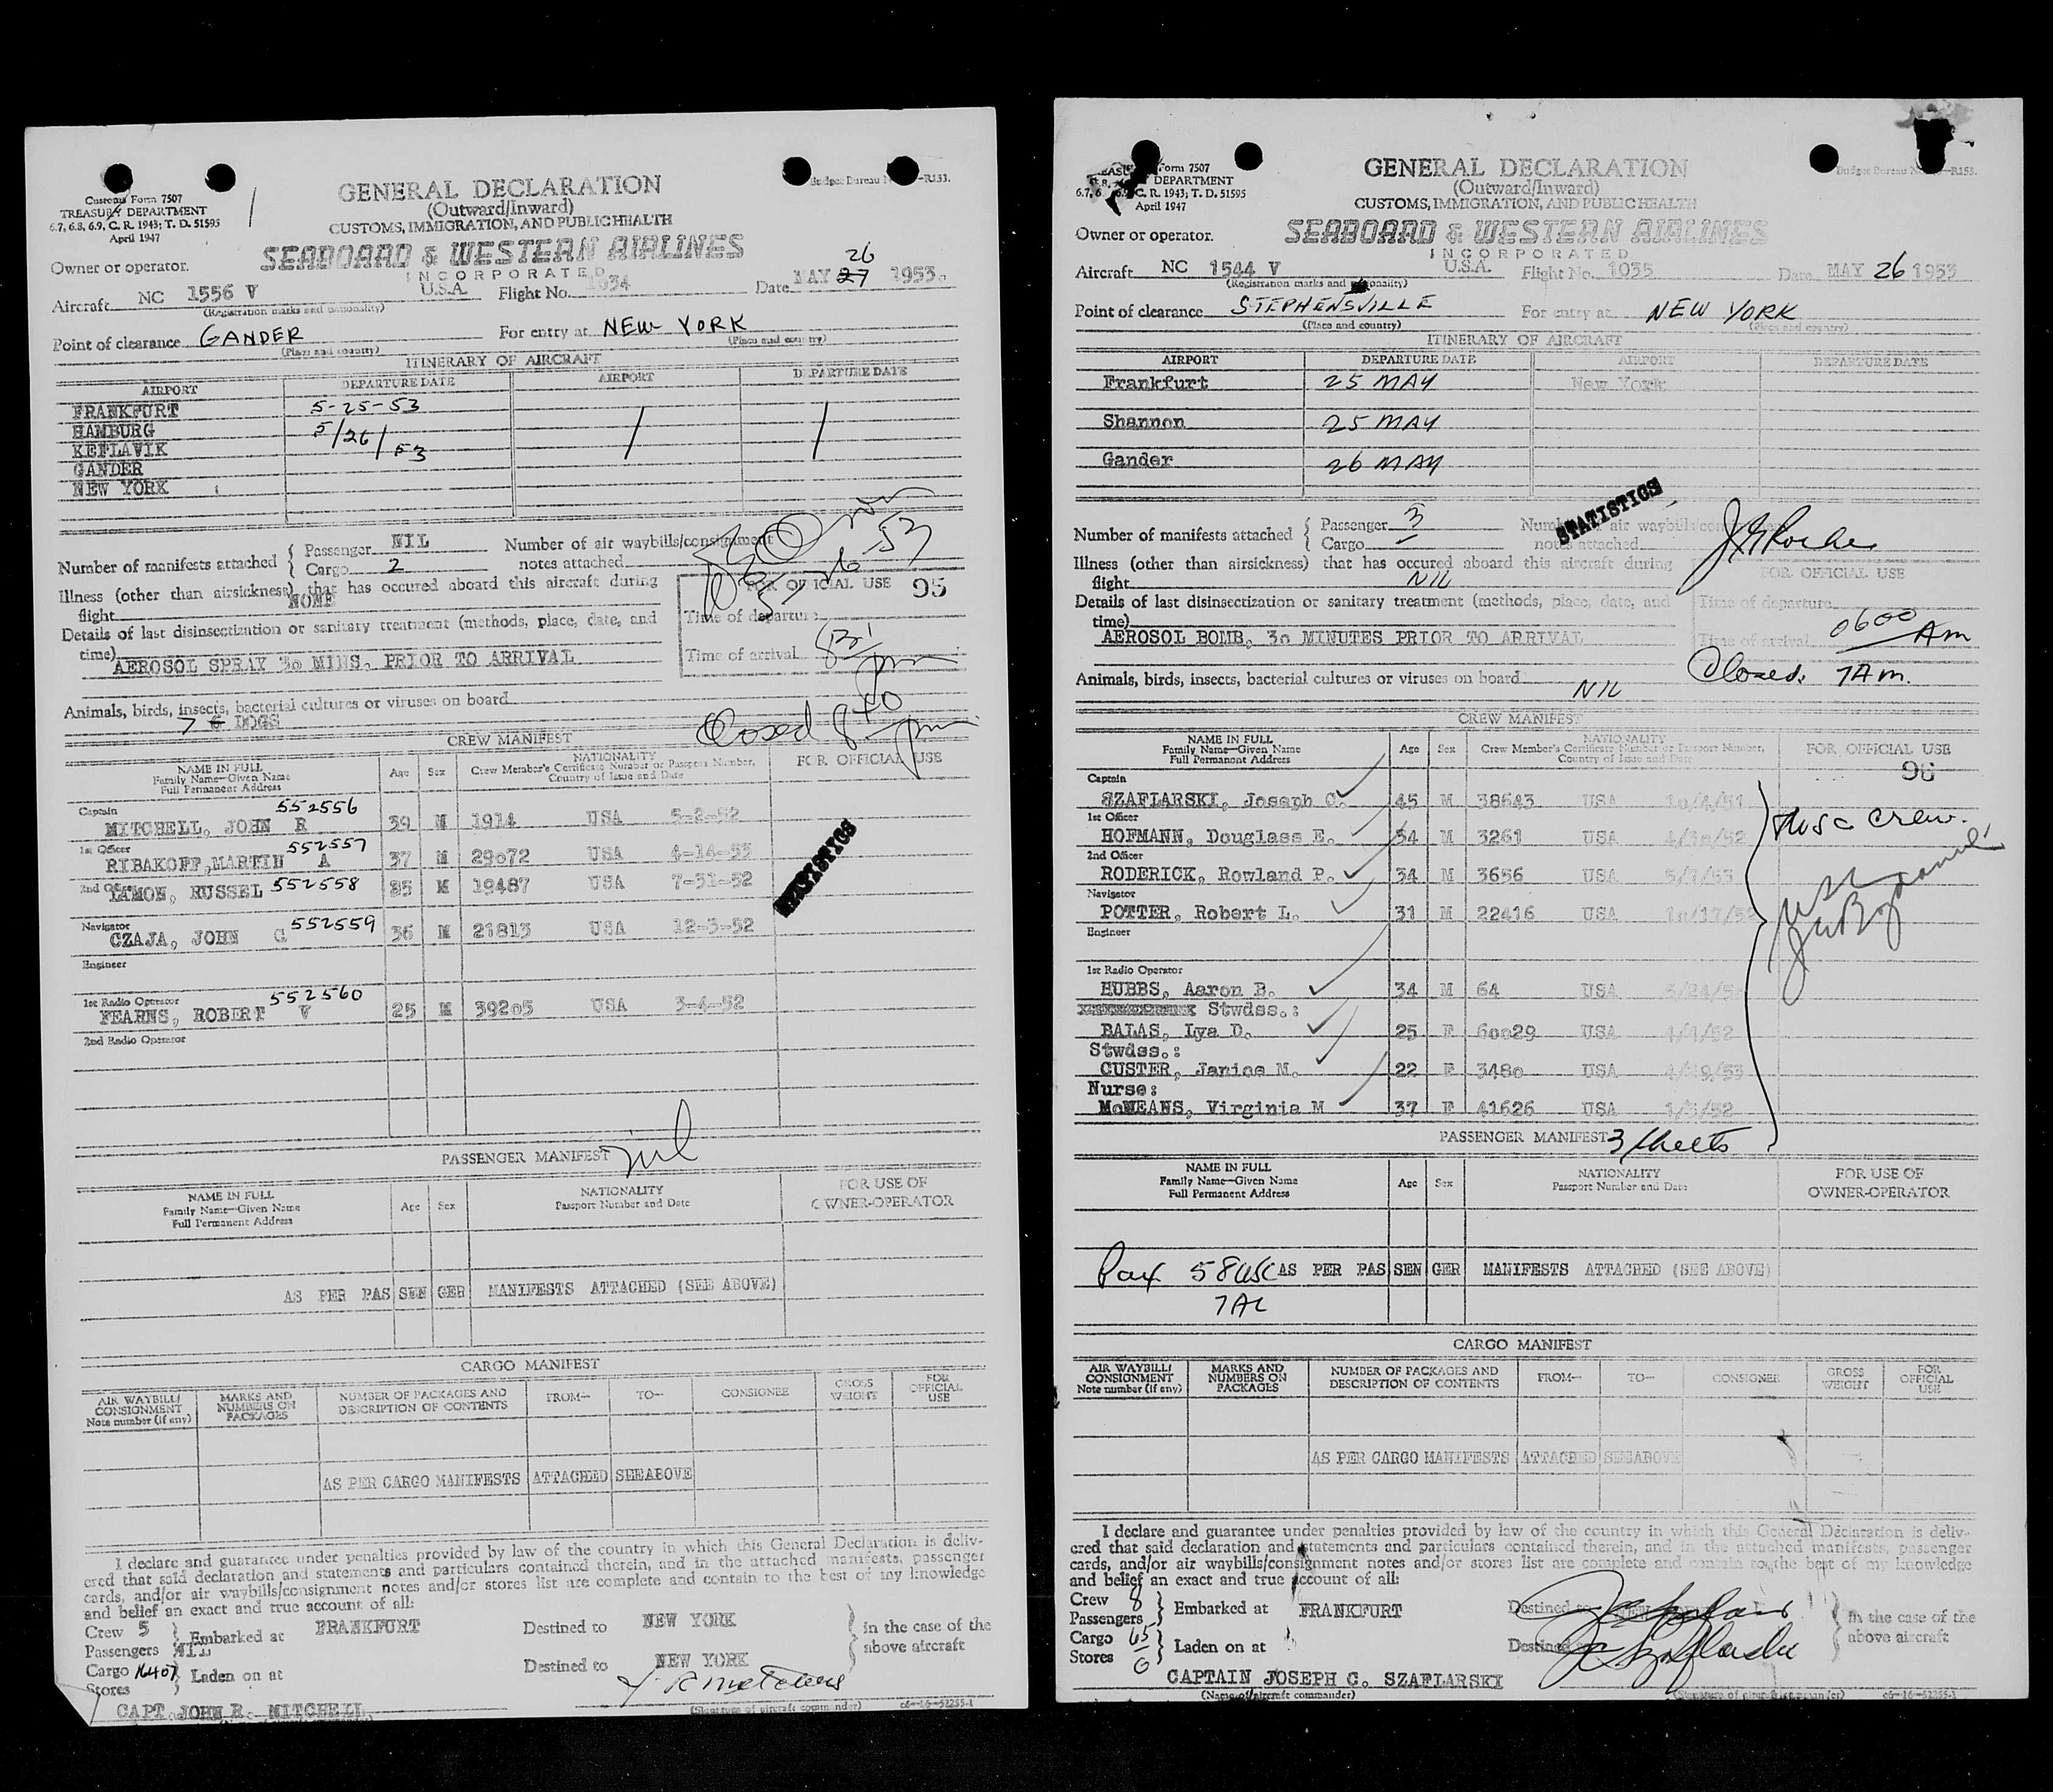 Customs Form 7507
TREASURY DEPARTMENT
6.7, 6.8, 6.9, C. R. 1943; T. D. 51595
April 1947
GENERAL DECLARATION
(Outward/Inward)
CUSTOMS, IMMIGRATION, AND PUBLIC HEALTH
Budget Bureau -R153.
Owner or operator.
SEABOARD & WESTERN AIRLINES
INCORPORATED
Aircraft NC 1556 V U.S.A. Flight No. 1034 Date MAY 27 26 1953.
(Registration marks and nationality)
Point of clearance GANDER For entry at NEW YORK
(Place and country) (Place and country)
ITINERARY OF AIRCRAFT
AIRPORT DEPARTURE DATE AIRPORT DEPARTURE DATE
FRANKFURT 5-25-53
HAMBURG 5/26/53
KEFLAVIK
GANDER
NEW YORK
Number of manifests attached { Passenger NIL Number of air waybills/consignment
Cargo 2 notes attached
Illness (other than airsickness) that has occured aboard this aircraft during
flight NONE
FOR OFFICIAL USE 95
Details of last disinsectization or sanitary treatment (methods, place, date, and
time) AEROSOL SPRAY 30 MINS. PRIOR TO ARRIVAL
Time of departure
Time of arrival
Animals, birds, insects, bacterial cultures or viruses on board
7 6 DOGS
Closed 8
CREW MANIFEST
NAME IN FULL Age Sex NATIONALITY FOR OFFICIAL USE
Family Name—Given Name Crew Member's Certificate Number or Passport Number,
Full Permanent Address Country of Issue and Date
Captain 552556
MITCHELL, JOHN R 39 M 1914 USA 5-2-52
1st Officer 552557
RIBAKOFF, MARTIN A 37 M 29072 USA 4-14-53
2nd Officer 552558
LAMON, RUSSEL 25 M 19487 USA 7-31-52
STATISTICS
Navigator 552559
CZAJA, JOHN G 36 M 21813 USA 12-3-52
Engineer
1st Radio Operator 552560
FEARNS, ROBERT V 25 M 39205 USA 3-4-52
2nd Radio Operator
PASSENGER MANIFEST nil
NAME IN FULL Age Sex NATIONALITY FOR USE OF
Family Name—Given Name Passport Number and Date OWNER-OPERATOR
Full Permanent Address
AS PER PASSENGER MANIFESTS ATTACHED (SEE ABOVE)
CARGO MANIFEST
AIR WAYBILL/ CONSIGNMENT Note number (if any) MARKS AND NUMBERS ON PACKAGES NUMBER OF PACKAGES AND DESCRIPTION OF CONTENTS FROM— TO— CONSIGNEE GROSS WEIGHT FOR OFFICIAL USE
AS PER CARGO MANIFESTS ATTACHED SEE ABOVE
I declare and guarantee under penalties provided by law of the country in which this General Declaration is deliv-
ered that said declaration and statements and particulars contained therein, and in the attached manifests, passenger
cards, and/or air waybills/consignment notes and/or stores list are complete and contain to the best of my knowledge
and belief an exact and true account of all:
Crew 5 } Embarked at FRANKFURT Destined to NEW YORK } in the case of the
Passengers NIL above aircraft
Cargo 16407 } Laden on at Destined to NEW YORK
Stores
CAPT. JOHN R. MITCHELL
(Signature of aircraft commander) c6-16-52255-1
Form 7507
DEPARTMENT
C. R. 1943; T. D. 51595
April 1947
GENERAL DECLARATION
(Outward/Inward)
CUSTOMS, IMMIGRATION, AND PUBLIC HEALTH
Budget Bureau -R153.
Owner or operator.
SEABOARD & WESTERN AIRLINES
INCORPORATED
Aircraft NC 1544 V U.S.A. Flight No. 1035 Date MAY 26 1953
(Registration marks and nationality)
Point of clearance STEPHENSVILLE For entry at NEW YORK
(Place and country) (Place and country)
ITINERARY OF AIRCRAFT
AIRPORT DEPARTURE DATE AIRPORT DEPARTURE DATE
Frankfurt 25 MAY New York
Shannon 25 MAY
Gander 26 MAY
STATISTICS
Number of manifests attached { Passenger 3 Number of air waybills/consignment
Cargo — notes attached
Illness (other than airsickness) that has occured aboard this aircraft during
flight NIL
FOR OFFICIAL USE
Details of last disinsectization or sanitary treatment (methods, place, date, and
time)
AEROSOL BOMB, 30 MINUTES PRIOR TO ARRIVAL
Time of departure
Time of arrival 0600 Am
Animals, birds, insects, bacterial cultures or viruses on board NIL
Closed: 7 Am.
CREW MANIFEST
NAME IN FULL Age Sex NATIONALITY FOR OFFICIAL USE
Family Name—Given Name Crew Member's Certificate Number or Passport Number,
Full Permanent Address Country of Issue and Date
96
Captain
SZAFLARSKI, Joseph C. 45 M 38643 USA 10/4/51
1st Officer
HOFMANN, Douglass E. 34 M 3261 USA 4/30/52
2nd Officer
RODERICK, Rowland P. 34 M 3656 USA 5/7/53
Navigator
POTTER, Robert L. 31 M 22416 USA 10/17/52
Engineer
1st Radio Operator
HUBBS, Aaron B. 34 M 64 USA
Stwdss.:
BALAS, Lya D. 25 F 60029 USA 4/4/52
Stwdss.:
CUSTER, Janice M. 22 F 3480 USA 4/29/53
Nurse:
McMEANS, Virginia M 37 F 41626 USA
crew.
PASSENGER MANIFEST 3 sheets
NAME IN FULL Age Sex NATIONALITY FOR USE OF
Family Name—Given Name Passport Number and Date OWNER-OPERATOR
Full Permanent Address
Pax 58 USC AS PER PASSENGER MANIFESTS ATTACHED (SEE ABOVE)
7 AL
CARGO MANIFEST
AIR WAYBILL/ CONSIGNMENT Note number (if any) MARKS AND NUMBERS ON PACKAGES NUMBER OF PACKAGES AND DESCRIPTION OF CONTENTS FROM— TO— CONSIGNEE GROSS WEIGHT FOR OFFICIAL USE
AS PER CARGO MANIFESTS ATTACHED SEE ABOVE
I declare and guarantee under penalties provided by law of the country in which this General Declaration is deliv-
ered that said declaration and statements and particulars contained therein, and in the attached manifests, passenger
cards, and/or air waybills/consignment notes and/or stores list are complete and contain to the best of my knowledge
and belief an exact and true account of all:
Crew 8 } Embarked at FRANKFURT Destined to } in the case of the
Passengers 65 above aircraft
Cargo } Laden on at Destined to
Stores 0
CAPTAIN JOSEPH C. SZAFLARSKI
(Name of aircraft commander) (Signature of aircraft commander) c6-16-52255-1